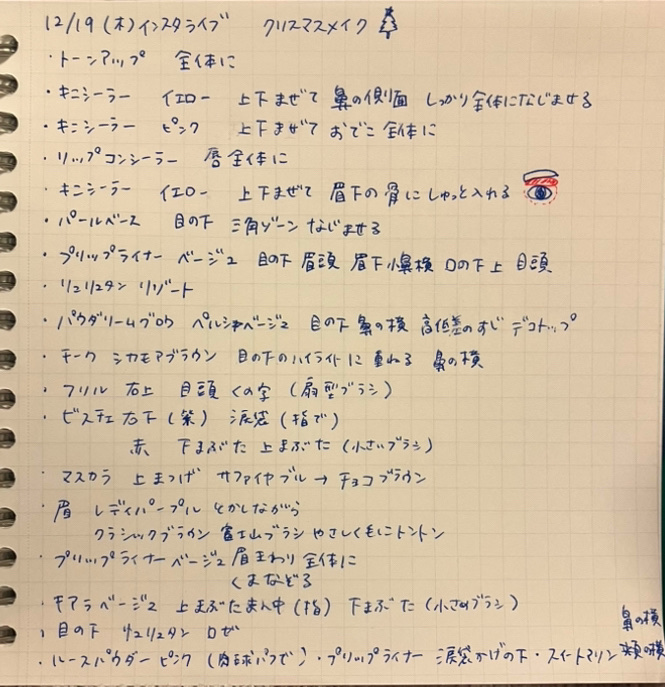 12/19 (木) インスタライブ クリスマスメイク
・トーンアップ 全体に
・キニシーラー イエロー 上下まぜて 鼻の側面 しっかり全体になじませる
・キニシーラー ピンク 上下まぜて おでこ 全体に
・リップコンシーラー 唇全体に
・キニシーラー イエロー 上下まぜて 眉下の骨にしゅっと入れる
・パールベース 目の下 三角ゾーン なじませる
・プリップライナー ベージュ 目の下 眉頭 眉下 小鼻横 口の下上 目頭
・リュリュタン リゾート
・パウダリームブロウ ペルシャベージュ 目の下 鼻の横 高低差のすじ デコトップ
・チーク シカモアブラウン 目の下のハイライトに重ねる 鼻の横
・フリル 右上 目頭 くの字 (扇型ブラシ)
・ビスチェ 右下 (紫) 涙袋 (指で)
赤 下まぶた 上まぶた (小さいブラシ)
・マスカラ 上まつげ サファイヤブル → チョコブラウン
・眉 レディパープル とかしながら
クラシックブラウン 富士山ブラシ やさしく毛にトントン
・プリップライナーベージュ 眉まわり 全体に
くまなぞる
・キアラベージュ 上まぶたまん中 (指) 下まぶた (小さめブラシ)
・目の下 リュリュタン ロゼ
・ルースパウダー ピンク (肉球パフで) ・プリップライナー 涙袋かげの下 ・スイートマリン 鼻の横 頬の横